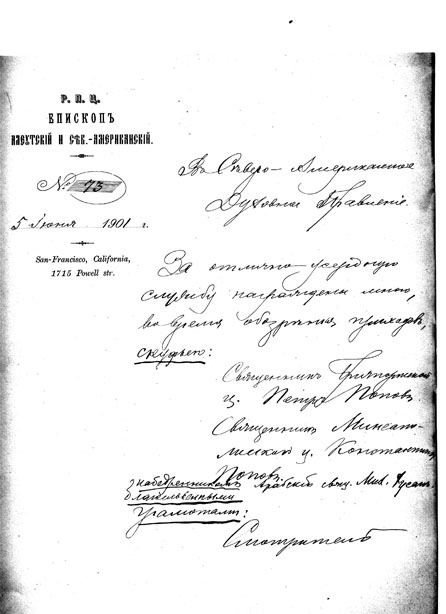 Р. П. Ц.
ЕПИСКОПЪ
АЛЕУТСКІЙ И СѢВ.-АМЕРИКАНСКІЙ.
№ 73
5 Іюня 1901 г.
San-Francisco, California,
1715 Powell str.
Въ Сѣверо-Американское
Духовное Правленіе.
За отлично-усердную
службу награждены мною,
во время обозрѣнія приходовъ,
скуфьею:
Священникъ
ц. Петръ Поповъ
Священникъ Миннеапо-
лиской ц. Константинъ
Поповъ.
набедренникомъ Арабскій свящ.
благословенными
грамотами:
Смотритель